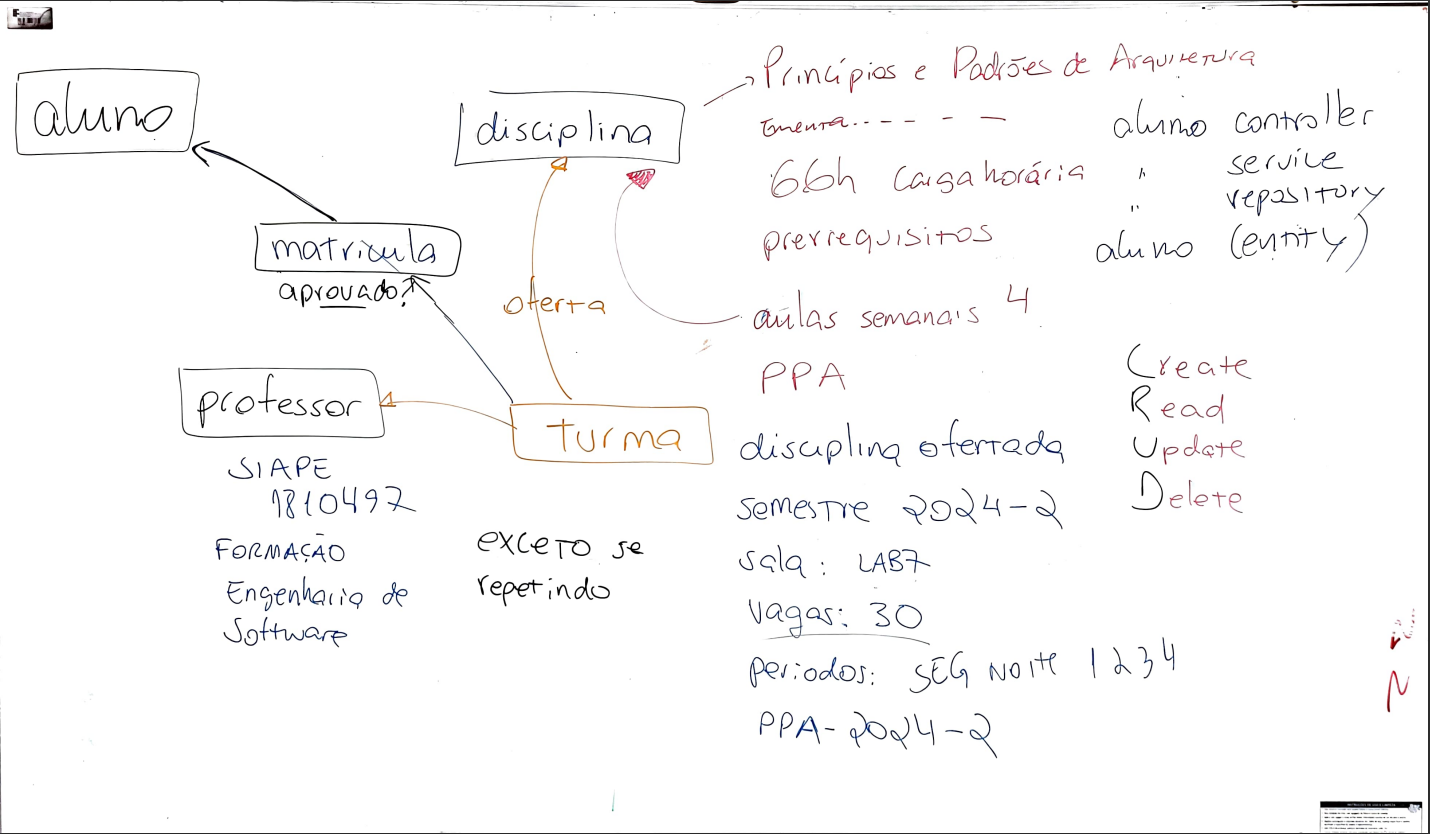 aluno
disciplina
matricula
aprovado?
oferta
professor
turma
SIAPE
1810497
FORMAÇÃO
Engenharia de
Software
exceto se
repetindo
Princípios e Padrões de Arquitetura
Ementa..---- - - —
66h carga horária
prerrequisitos
aulas semanais 4
PPA
disciplina ofertada
semestre 2024-2
sala: LAB7
vagas: 30
periodos: SEG NOITE 1234
PPA-2024-2
aluno controller
" service
" repository
aluno (entity)
Create
Read
Update
Delete